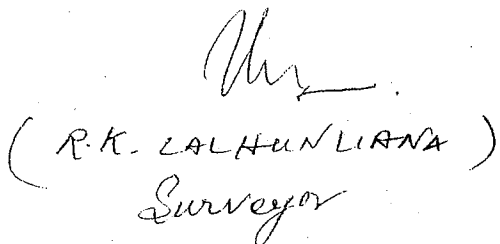 ( R.K. LALHUNLIANA )
Surveyor